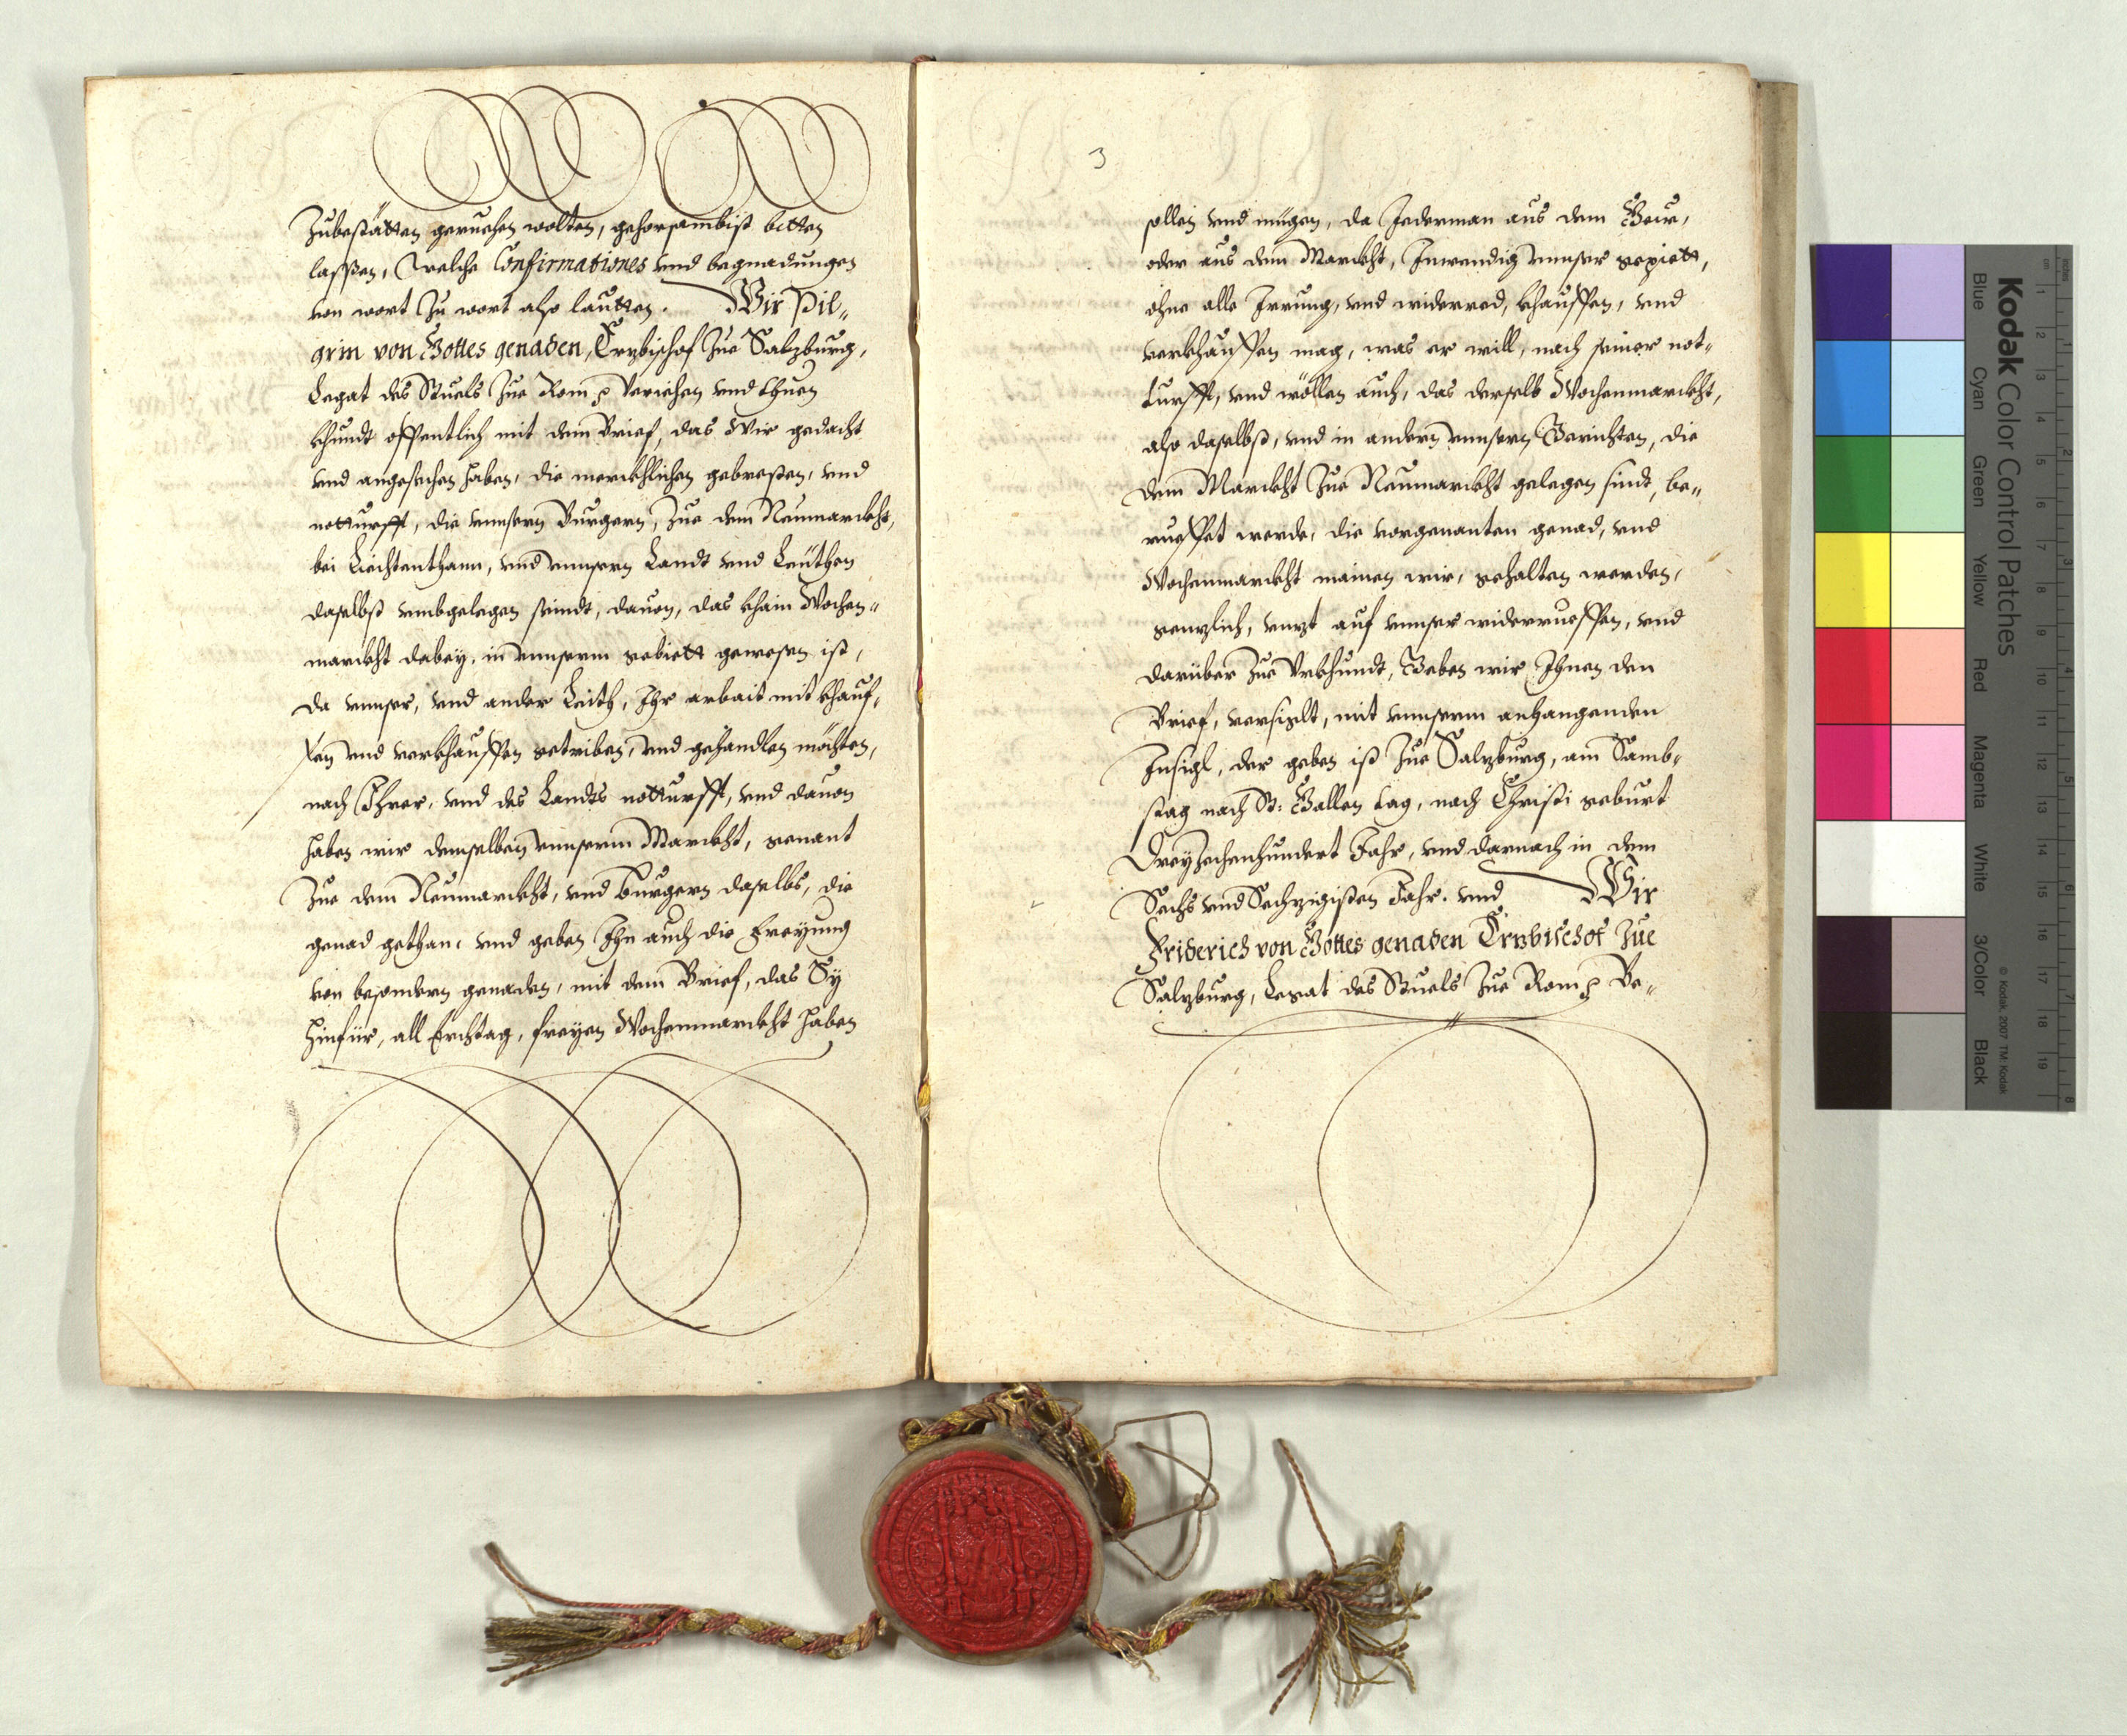 Zubestätten geruehen wolten, gehorsambist bitten
lassen, Welche Confirmationes vnd begnadungen
von wort Zu wort also lautten. Wir Pil„
grim von Gottes genaden, Ertzbischof Zue Salzburg,
Legat des Stuels Zue Rom Veriehen vnd thuen
khundt offentlich mit dem Brief, das Wir gedacht
vnd angesehen haben, die merckhlichen gebresten, vnd
notturfft, die vnnsern Burgern, Zue dem Neumarckht,
bei Liechtenthann, vnd vnnsern Landt vnd Leüthen
daselbst vmbgelegen seindt, dauon, das khain Wochen„
marckht dabey, in vnnserm gebiett gewesen ist,
da vnnser, vnd ander Leüth, Ihr arbait mit khauf,
fen vnd verkhauffen getriben, vnd gehandlen möchten,
nach Ihrer, vnd des Landts notturfft, vnd dauon
haben wir demselben vnnserm Marckht, genant
Zue dem Neumarckht, vnd Burgern daselbs, die
genad gethan, vnd geben Ihn auch die Freyung
von besondern genaden, mit dem Brief, das Sy
hinfür, all Erchtag, freyen Wochenmarckht haben
3
sollen vnd mügen, da Jederman aus dem Geüe,
oder aus dem Marckht, Inwendig vnnser gepiett,
ohne alle Irrung, vnd widerred, khauffen, vnd
verkhauffen mag, was er will, nach seiner not„
turfft, vnd wöllen auch, das derselb Wochenmarckht,
also daselbst, vnd in andern vnnsern Gerichten, die
dem Marckht Zue Neumarckht gelegen sindt, be„
rueffet werde, die vorgenanten genad, vnd
Wochenmarckht mainen wir, gehalten werden,
genzlich, vnnzt auf vnnser widerrueffen, vnd
darüber Zue Vrkhundt, Geben wir Ihnen den
Brief, versiglt, mit vnnserm anhangenden
Insigl, der geben ist Zue Salzburg, am Samb„
stag nach St: Gallen tag, nach Christi geburt
Dreyzechenhundert Jahr, vnd darnach in dem
Sechs vnd Sechzigisten Jahr. vnd Wir
Friderich von Gottes genaden Ertzbischof Zue
Salzburg, Legat des Stuels Zue Rom Be„
Kodak Color Control Patches
Blue Cyan Green Yellow Red Magenta White 3/Color Black
© Kodak, 2007 TM: Kodak
inches
cm 1 2 3 4 5 6 7 8 9 10 11 12 13 14 15 16 17 18 19
1 2 3 4 5 6 7 8